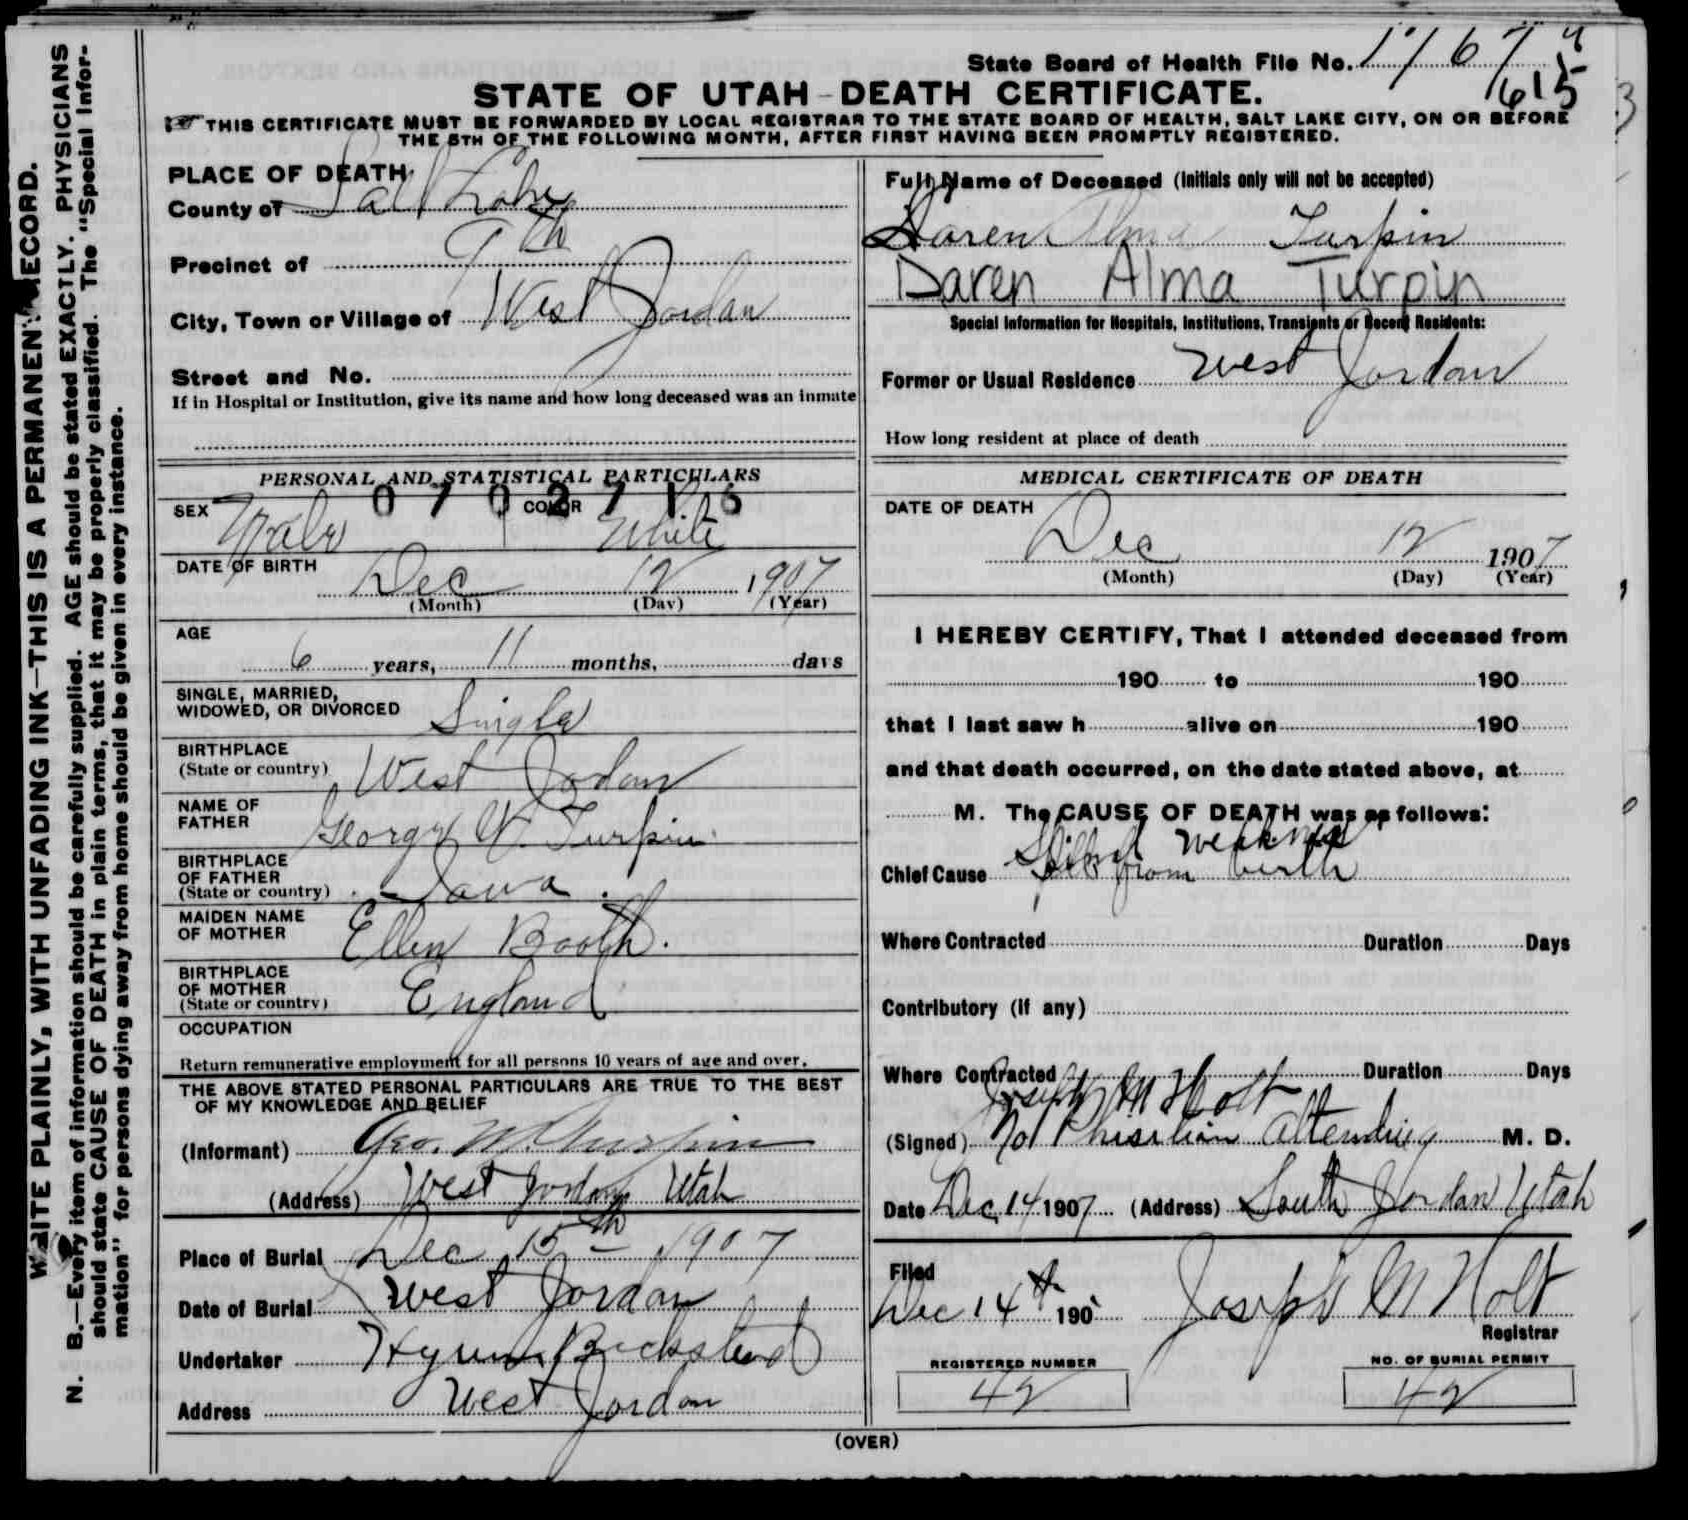 State Board of Health File No. 17674
1615
STATE OF UTAH - DEATH CERTIFICATE.
THIS CERTIFICATE MUST BE FORWARDED BY LOCAL REGISTRAR TO THE STATE BOARD OF HEALTH, SALT LAKE CITY, ON OR BEFORE
THE 5TH OF THE FOLLOWING MONTH, AFTER FIRST HAVING BEEN PROMPTLY REGISTERED.
WRITE PLAINLY, WITH UNFADING INK—THIS IS A PERMANENT RECORD.
N. B.—Every item of information should be carefully supplied. AGE should be stated EXACTLY. PHYSICIANS
should state CAUSE OF DEATH in plain terms, that it may be properly classified. The "Special Infor-
mation" for persons dying away from home should be given in every instance.
PLACE OF DEATH
County of Salt Lake
Precinct of 9th
City, Town or Village of West Jordan
Street and No.
If in Hospital or Institution, give its name and how long deceased was an inmate
PERSONAL AND STATISTICAL PARTICULARS
SEX Male COLOR White
DATE OF BIRTH Dec 12 1907
(Month) (Day) (Year)
AGE
6 years, 11 months, days
SINGLE, MARRIED,
WIDOWED, OR DIVORCED Single
BIRTHPLACE
(State or country) West Jordan
NAME OF
FATHER George W. Turpin
BIRTHPLACE
OF FATHER
(State or country) Iowa
MAIDEN NAME
OF MOTHER Ellen Booth.
BIRTHPLACE
OF MOTHER
(State or country) England
OCCUPATION
Return remunerative employment for all persons 10 years of age and over.
THE ABOVE STATED PERSONAL PARTICULARS ARE TRUE TO THE BEST
OF MY KNOWLEDGE AND BELIEF
(Informant) Geo. W. Turpin
(Address) West Jordan Utah
Place of Burial Dec 15th 1907
Date of Burial West Jordan
Undertaker Hyrum Beckstead
Address West Jordan
Full Name of Deceased (Initials only will not be accepted)
Daren Alma Turpin
Daren Alma Turpin
Special Information for Hospitals, Institutions, Transients or Recent Residents:
Former or Usual Residence West Jordan
How long resident at place of death
MEDICAL CERTIFICATE OF DEATH
DATE OF DEATH
Dec 12 1907
(Month) (Day) (Year)
I HEREBY CERTIFY, That I attended deceased from
190 to 190
that I last saw h alive on 190
and that death occurred, on the date stated above, at
M. The CAUSE OF DEATH was as follows:
weakness
Chief Cause from birth
Where Contracted Duration Days
Contributory (if any)
Where Contracted Duration Days
Joseph M Holt
(Signed) No Phisitian Attending M. D.
Date Dec 14 1907 (Address) South Jordan Utah
Filed
Dec 14th 190 Joseph M Holt
Registrar
REGISTERED NUMBER
42
NO. OF BURIAL PERMIT
42
(OVER)